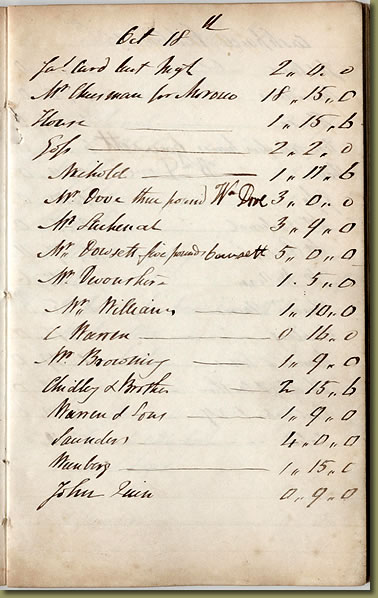 11
Oct 18
Jas. Curd 2 ,, 0 . 0
Mr Cheesman for 18 ,, 15 ,, 0
House 1 ,, 15 ,, 6
Goss 2 ,, 2 ,, 0
Neibold 1 ,, 17 ,, 6
Mr. Dove three pound Wm Dove 3 ,, 0 ,, 0
Mr 3 ,, 9 ,, 0
Mr Dowsett five pounds Dowsett 5 ,, 0 ,, 0
Mr. Devonshire 1 . 5 ,, 0
Mr. Williams 1 ,, 10 ,, 0
C Warren 0 16 ,, 0
Mr Browning 1 ,, 9 ,, 0
Chidley & Brother 2 15 ,, 6
Warren & Sons 1 ,, 9 ,, 0
Saunders 4 ,, 0 ,, 0
1 ,, 15 ,, 0
John 0 ,, 9 ,, 0